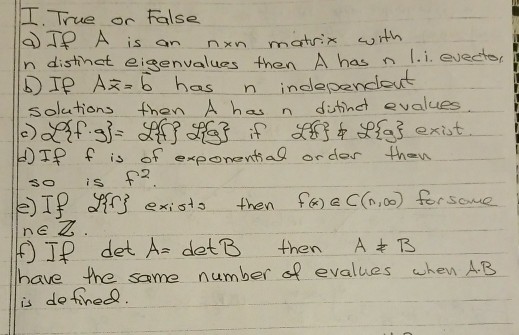 I. True or False
a) If A is an nxn matrix with
n distinct eigenvalues then A has n l.i. evector.
b) If Ax̄=b̄ has n independent
solutions then A has n distinct evalues.
c) ℒ{f·g}= ℒ{f} ℒ{g} if ℒ{f} & ℒ{g} exist.
d) If f is of exponential order then
so is f².
e) If ℒ{f} exists then f(x) ∈ C(n,∞) for some
n∈ ℤ.
f) If det A= det B then A & B
have the same number of evalues when A·B
is defined.